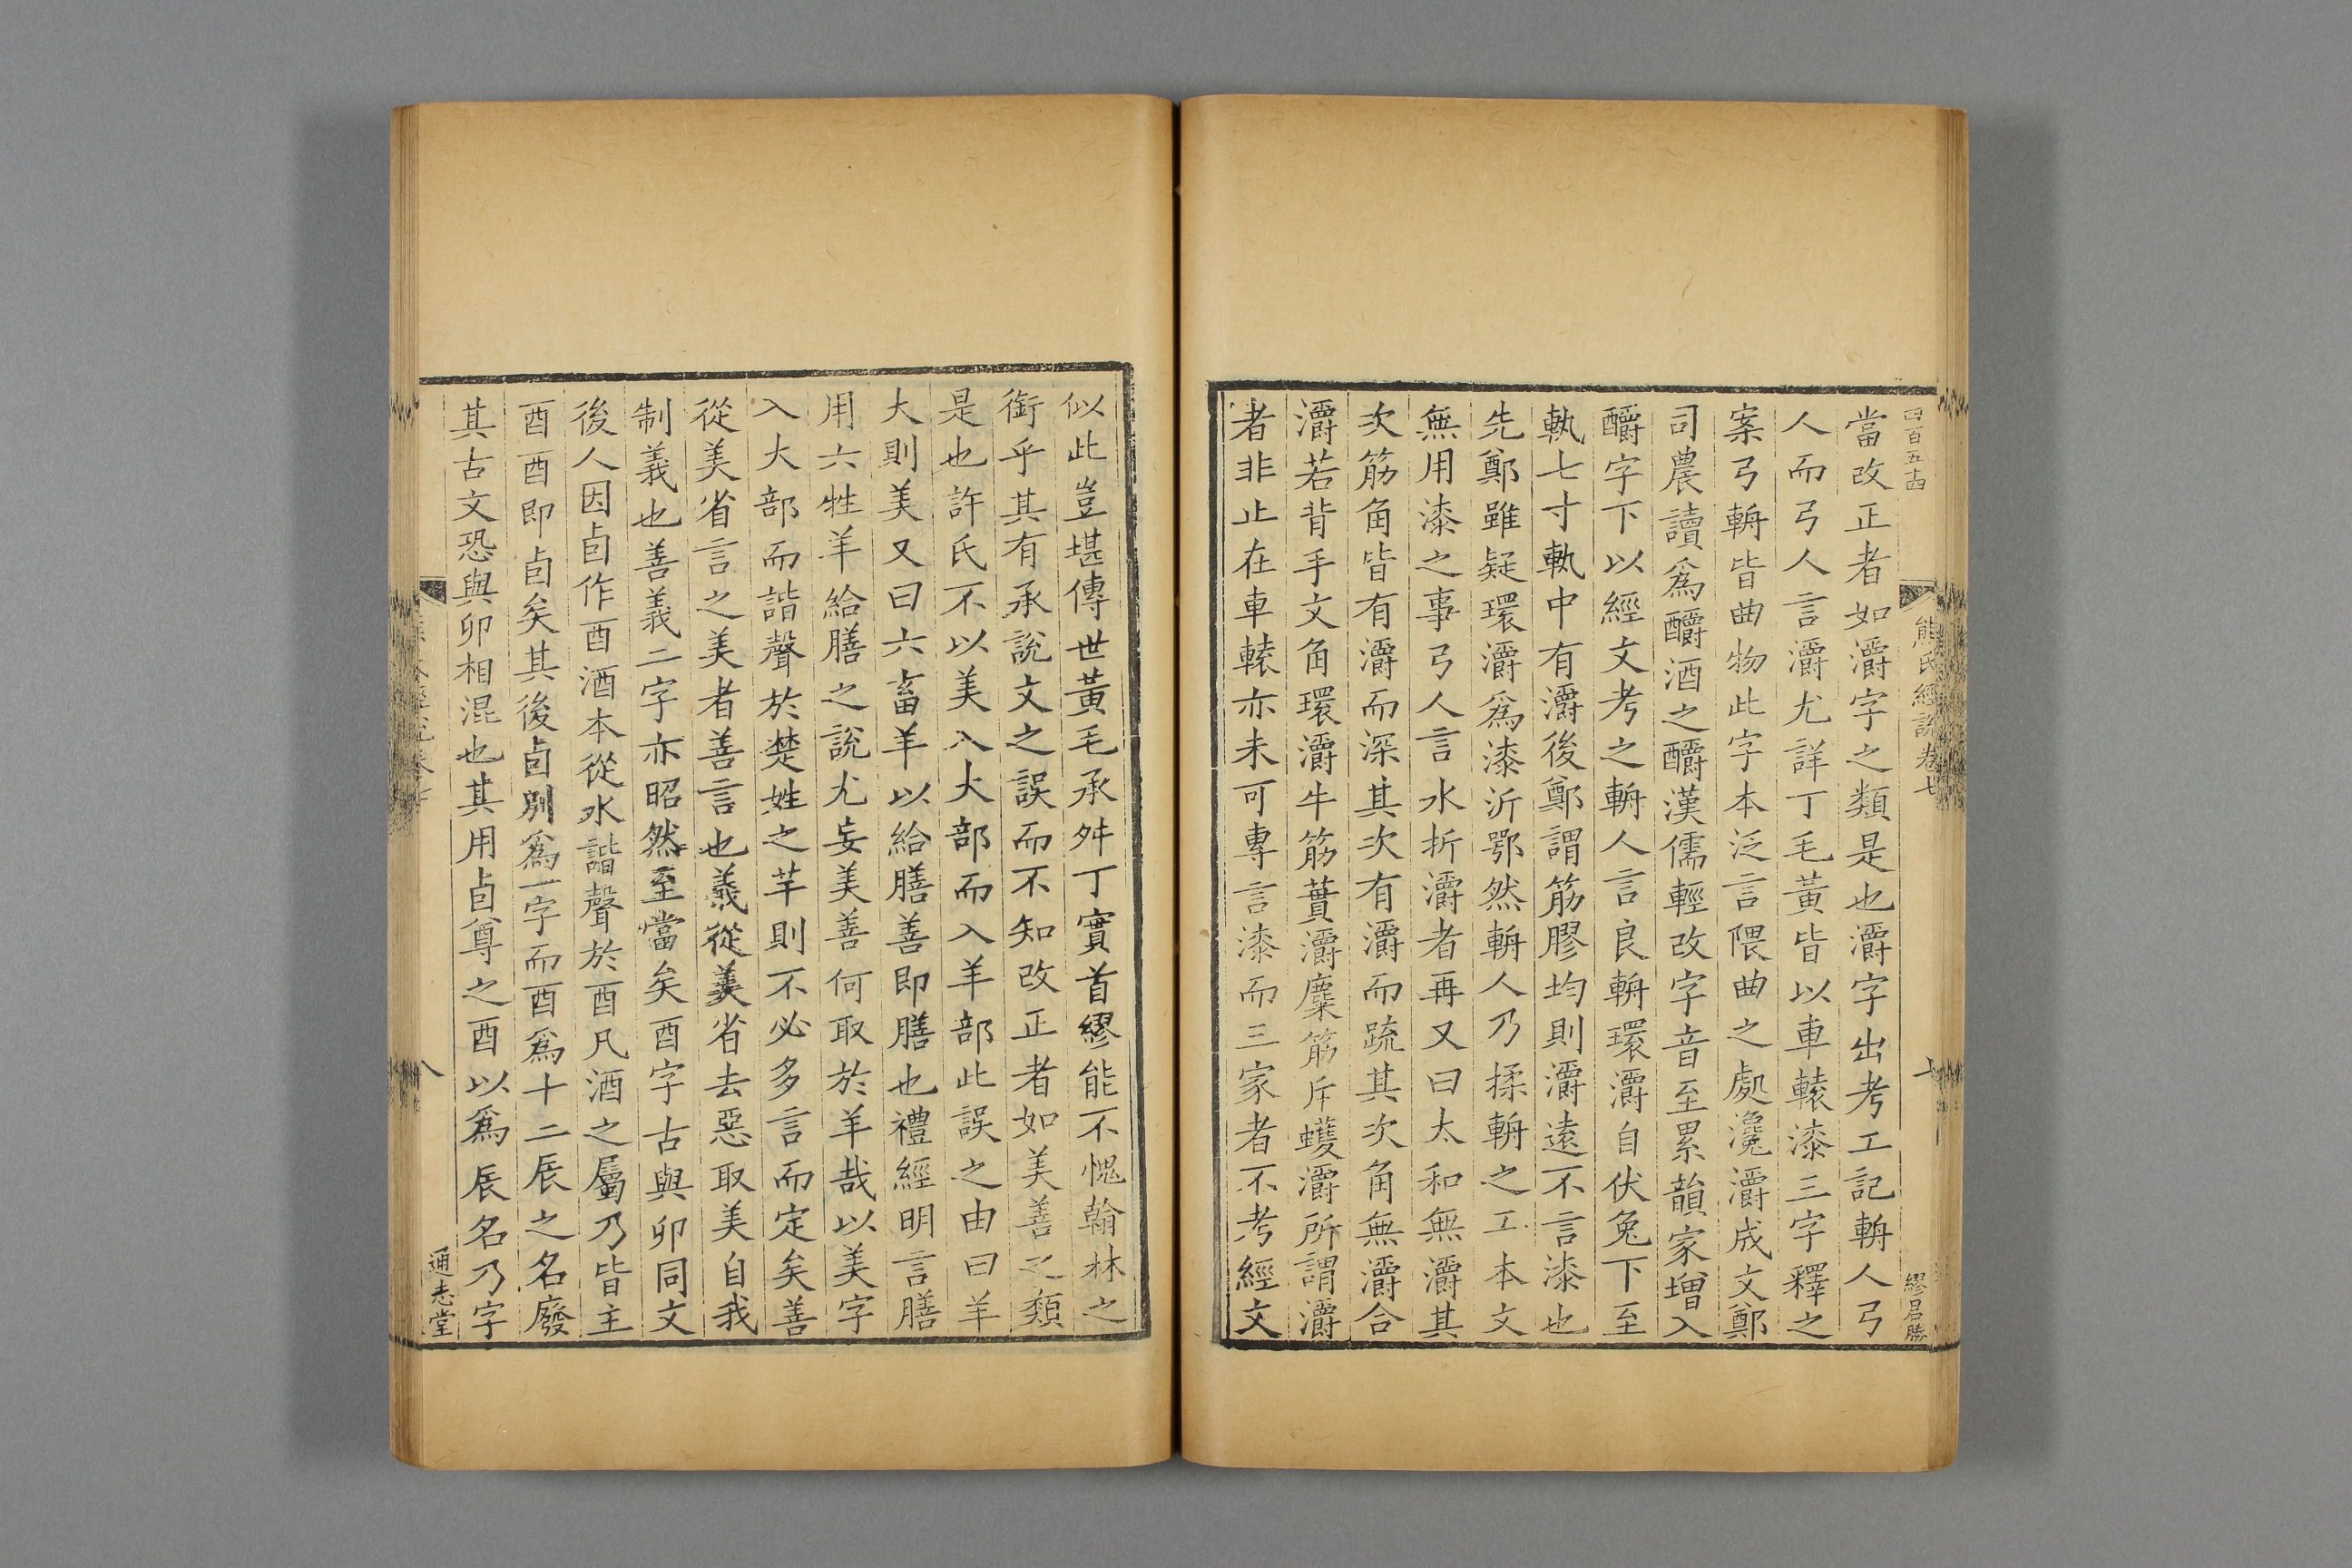 四百五十四
熊氏經說卷七
繆君勝
當改正者如灂字之類是也灂字出考工記輈人弓
人而弓人言灂尤詳丁毛黃皆以車轅漆三字釋之
案弓輈皆曲物此字本泛言隈曲之處瀺灂成文鄭
司農讀爲釂酒之釂漢儒輕改字音至累韻家增入
釂字下以經文考之輈人言良輈環灂自伏兔下至
軓七寸軓中有灂後鄭謂筋膠均則灂遠不言漆也
先鄭雖疑環灂爲漆沂鄂然輈人乃揉輈之工本文
無用漆之事弓人言水折灂者再又曰太和無灂其
次筋角皆有灂而深其次有灂而疏其次角無灂合
灂若背手文角環灂牛筋蕡灂麋筋斥蠖灂所謂灂
者非止在車轅亦未可專言漆而三家者不考經文
似此豈堪傳世黃毛承舛丁實首繆能不愧翰林之
銜乎其有承說文之誤而不知改正者如美善之類
是也許氏不以美入大部而入羊部此誤之由曰羊
大則美又曰六畜羊以給膳善即膳也禮經明言膳
用六牲羊給膳之說尤妄美善何取於羊哉以美字
入大部而諧聲於楚姓之芊則不必多言而定矣善
從美省言之美者善言也義從美省去惡取美自我
制義也善義二字亦昭然至當矣酉字古與卯同文
後人因卣作酉酒本從水諧聲於酉凡酒之屬乃皆主
酉酉即卣矣其後卣別爲一字而酉爲十二辰之名廢
其古文恐與卯相混也其用卣尊之酉以爲辰名乃字
八
通志堂